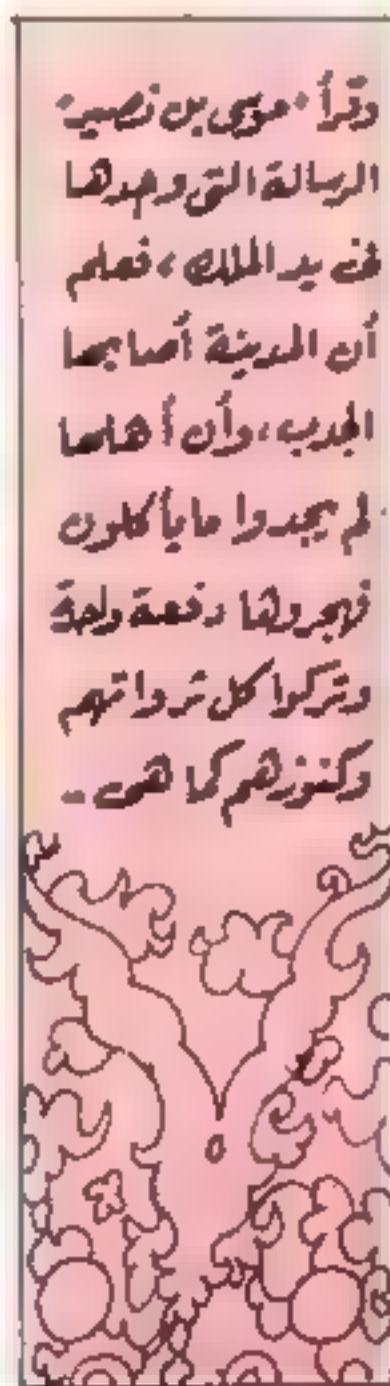 وقرأ "موسى بن نصير"
الرسالة التى وجدها
فى يد الملك، فعلم
أن المدينة أصابها
الجدب، وأن أهلها
لم يجدوا ما يأكلون
فهجروها دفعة واحدة
وتركوا كل ثرواتهم
وكنوزهم كما هى ..